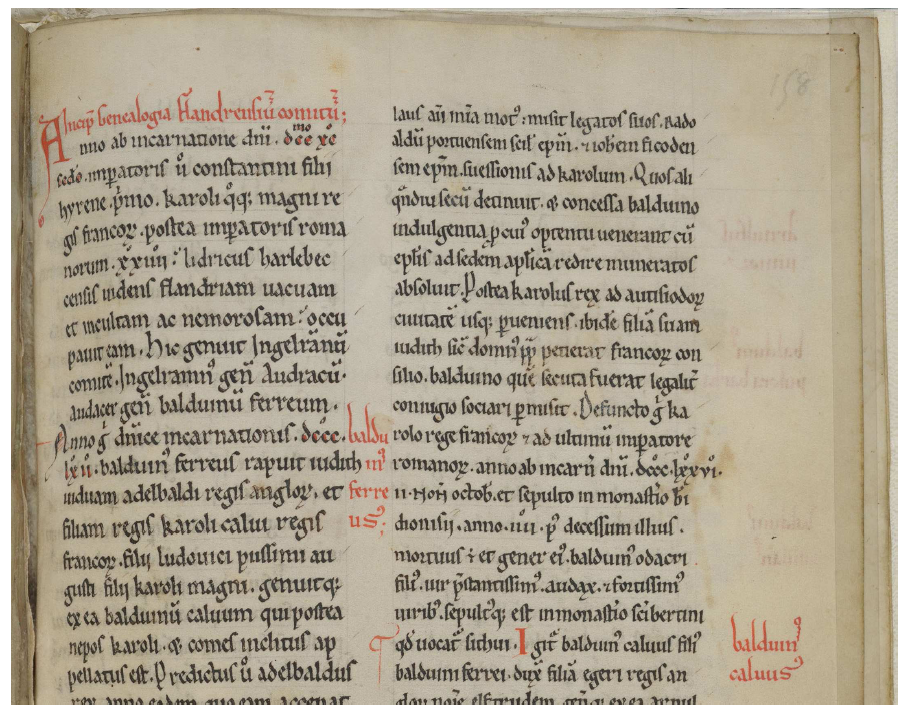 Incip̅ Genealogia flandrensiu̅ comitu̅;
Anno ab incarnatione dn̅i. dccͫͦ xc̅
sedo. imp̅atoris u̅ constantini filii
hyrene. p̅mo. karoli qͦq; magni re
gis francoꝝ. postea imp̅atoris roma
norum. xxiiii. lidricus harlebec
censis uidens flandriam uacuam
et incultam ac nemorosam. occu
pauit eam. Hic genuit Ingelra̅nu̅
comite̅. Ingelramnꝰ gen̅ Audracu̅.
audacer gen̅ balduinu̅ ferreum.
Anno g̊ dn̅ice incarnationis. dccc.
lxii. balduinꝰ ferreus rapuit iudith
uiduam adelbaldi regis angloꝝ. et
filiam regis karoli calui regis
francoꝝ. filii ludouici piissimi au
gusti filii karoli magni. genuitq;
ex ea balduinu̅ caluum qui postea
nepos karoli. & comes inclitus ap
pellatus est. Predictus u̅ adelbaldus
rex anno eadem quo eam acceperat
baldu
inꝰ
ferre
us.
laus au̅ mi̅a motꝰ. misit legatos suos. Rado
aldu̅ portuensem scil' ep̅m. ⁊ ioh̅em ficoden
sem ep̅m. suessionis ad karolum. Quos ali
qn̅diu secu̅ detinuit. & concessa balduino
indulgentia ꝑ cuiꝰ optentu uenerant cu̅
ep̅lis ad sedem ap̅lica̅ redire muneratos
absoluit. Postea karolus rex ad autisiodoꝝ
ciuitate̅ usq; ꝑueniens. ibide̅ filia̅ suam
iudith sic̅ domnꝰ pp̅ petierat francoꝝ con
silio. balduino que̅ secuta fuerat legalit̅
coniugio sociari ꝑmisit. Defuncto g̊ ka
rolo rege francoꝝ ⁊ ad ultimu̅ imp̅atore
romanoꝝ. anno ab incarn̅ dn̅i. dccc. lxxvi.
ii. non̅ octob̅. et sepulto in monast̅io b̅i
dionisii. anno. iii. p̅ decessum illius.
mortuus ÷ et gener eiꝰ. balduinꝰ odacri
filiꝰ. uir p̅stantissimꝰ. audax. ⁊ fortissimꝰ
uiribꝰ. sepultꝰq; est in monast̅io sc̅i bertini
qd̅ uocat̅ sithiu. Igit̅ balduinꝰ caluus filiꝰ
balduini ferrei. dux̅ filia̅ egeri regis an
gloꝝ no̅ie elftrudem. gen̅q; ex ea arnul
balduinꝰ
caluus
158